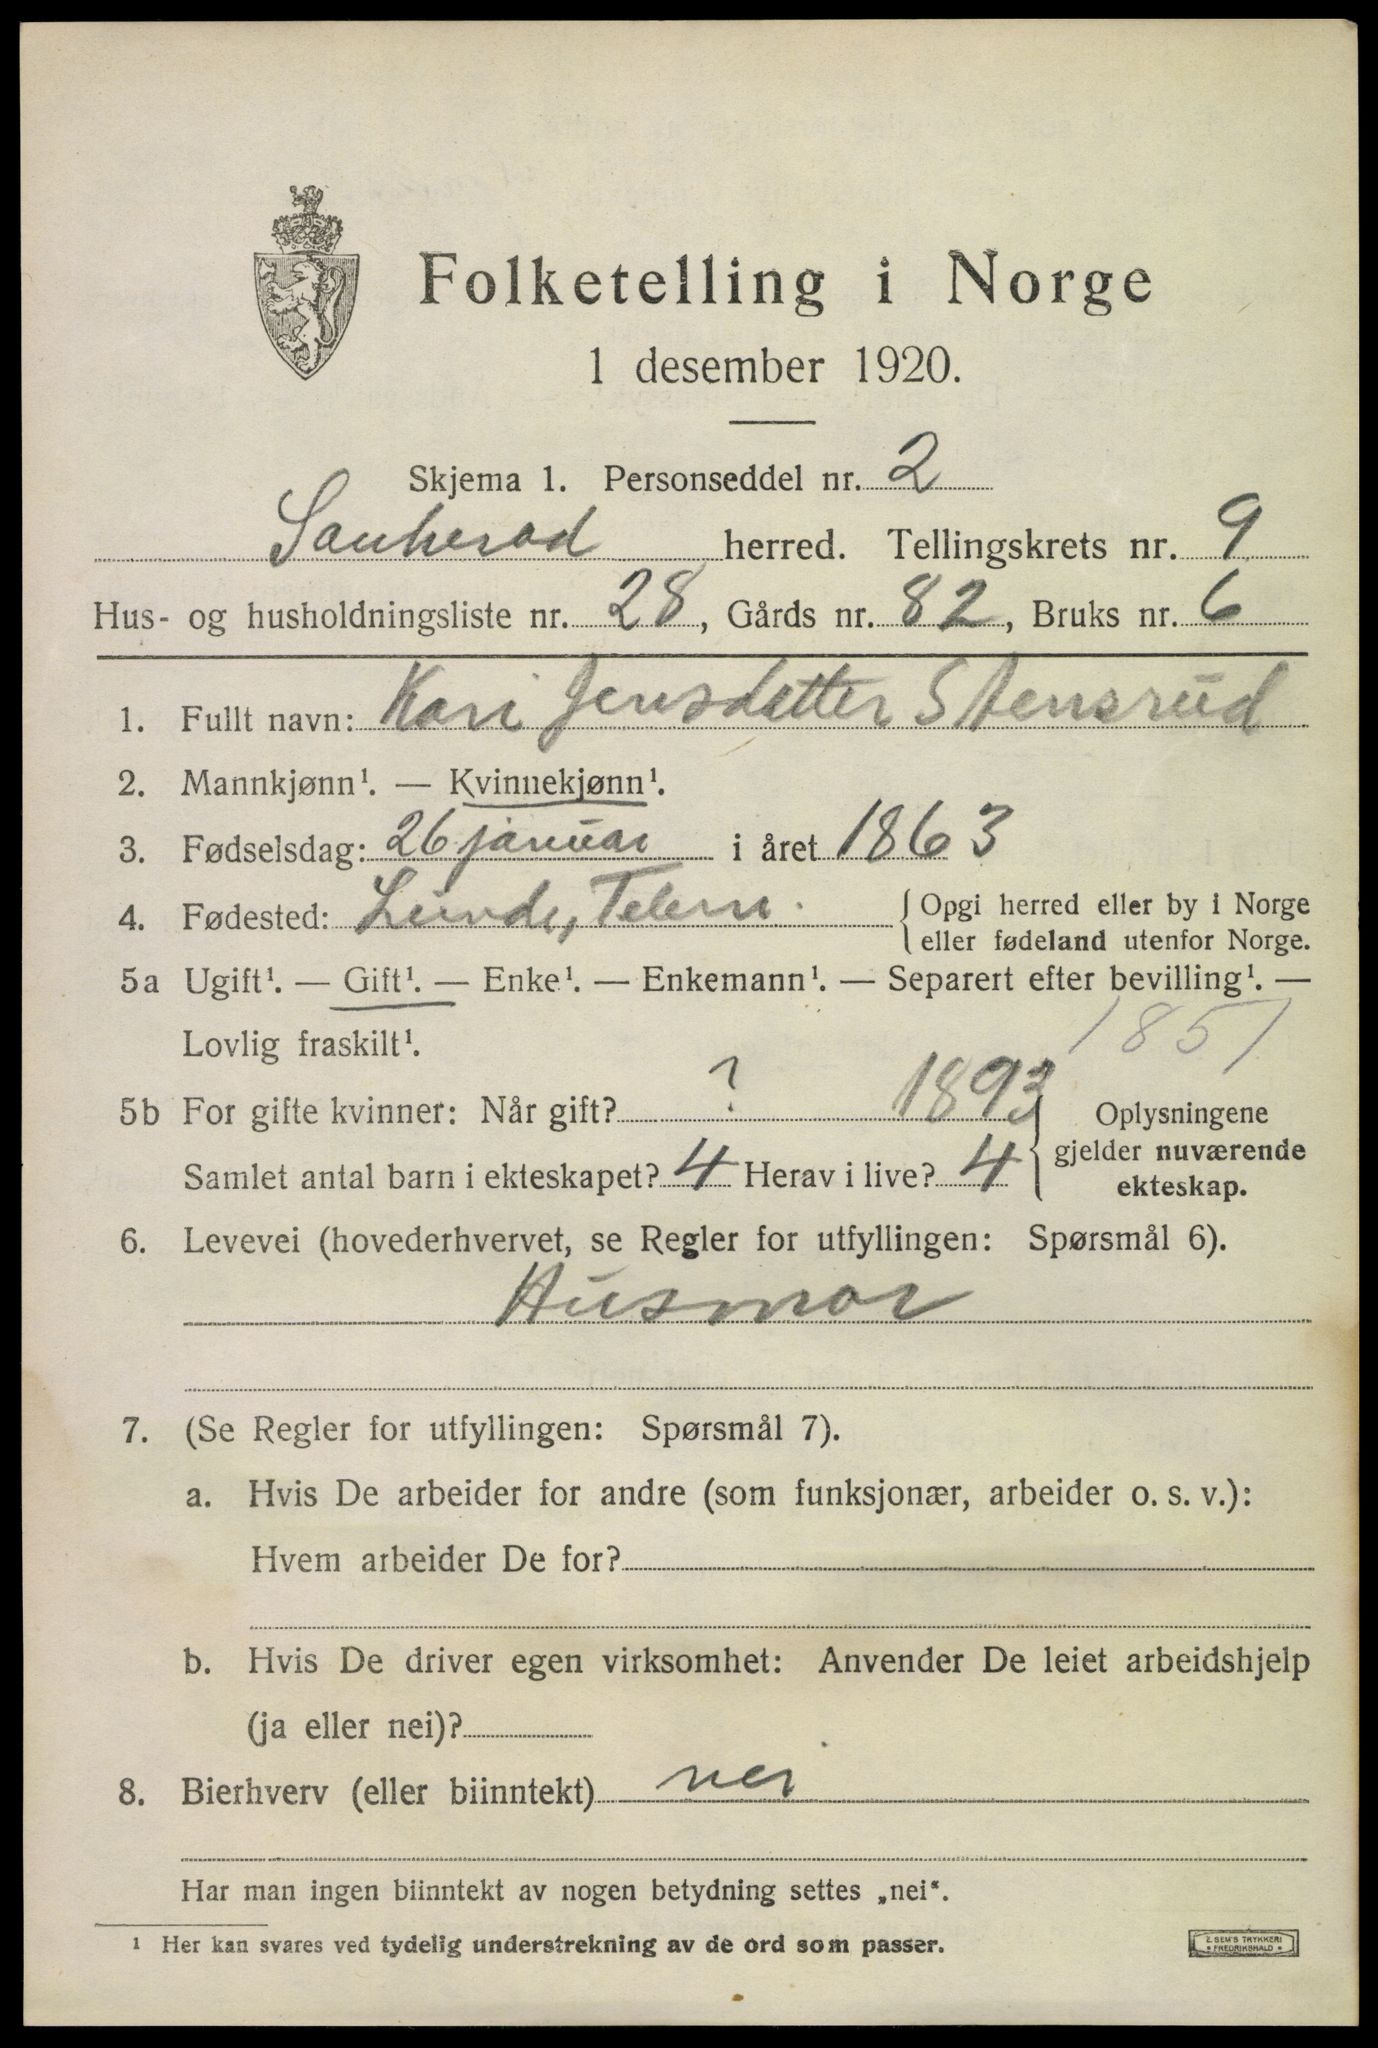 Folketelling i Norge
1 desember 1920.
Skjema 1. Personseddel nr. 2
Sauherad herred. Tellingskrets nr. 9
Hus- og husholdningsliste nr. 28, Gårds nr. 82, Bruks nr. 6
1. Fullt navn: Kari Jensdatter Stensrud
2. Mannkjønn¹. — Kvinnekjønn¹.
3. Fødselsdag: 26 januar i året 1863
4. Fødested: Lunde, Telem. Opgi herred eller by i Norge
eller fødeland utenfor Norge.
5a Ugift¹. — Gift¹. — Enke¹. — Enkemann¹. — Separert efter bevilling¹. —
Lovlig fraskilt¹. 1851
5b For gifte kvinner: Når gift? ? 1893 Oplysningene
gjelder nuværende
Samlet antal barn i ekteskapet? 4 Herav i live? 4 ekteskap.
6. Levevei (hovederhvervet, se Regler for utfyllingen: Spørsmål 6).
Husmor
7. (Se Regler for utfyllingen: Spørsmål 7).
a. Hvis De arbeider for andre (som funksjonær, arbeider o. s. v.):
Hvem arbeider De for?
b. Hvis De driver egen virksomhet: Anvender De leiet arbeidshjelp
(ja eller nei)?
8. Bierhverv (eller biinntekt) nei
Har man ingen biinntekt av nogen betydning settes „nei“.
¹ Her kan svares ved tydelig understrekning av de ord som passer.
E. SEM'S TRYKKERI
• FREDRIKSHALD •